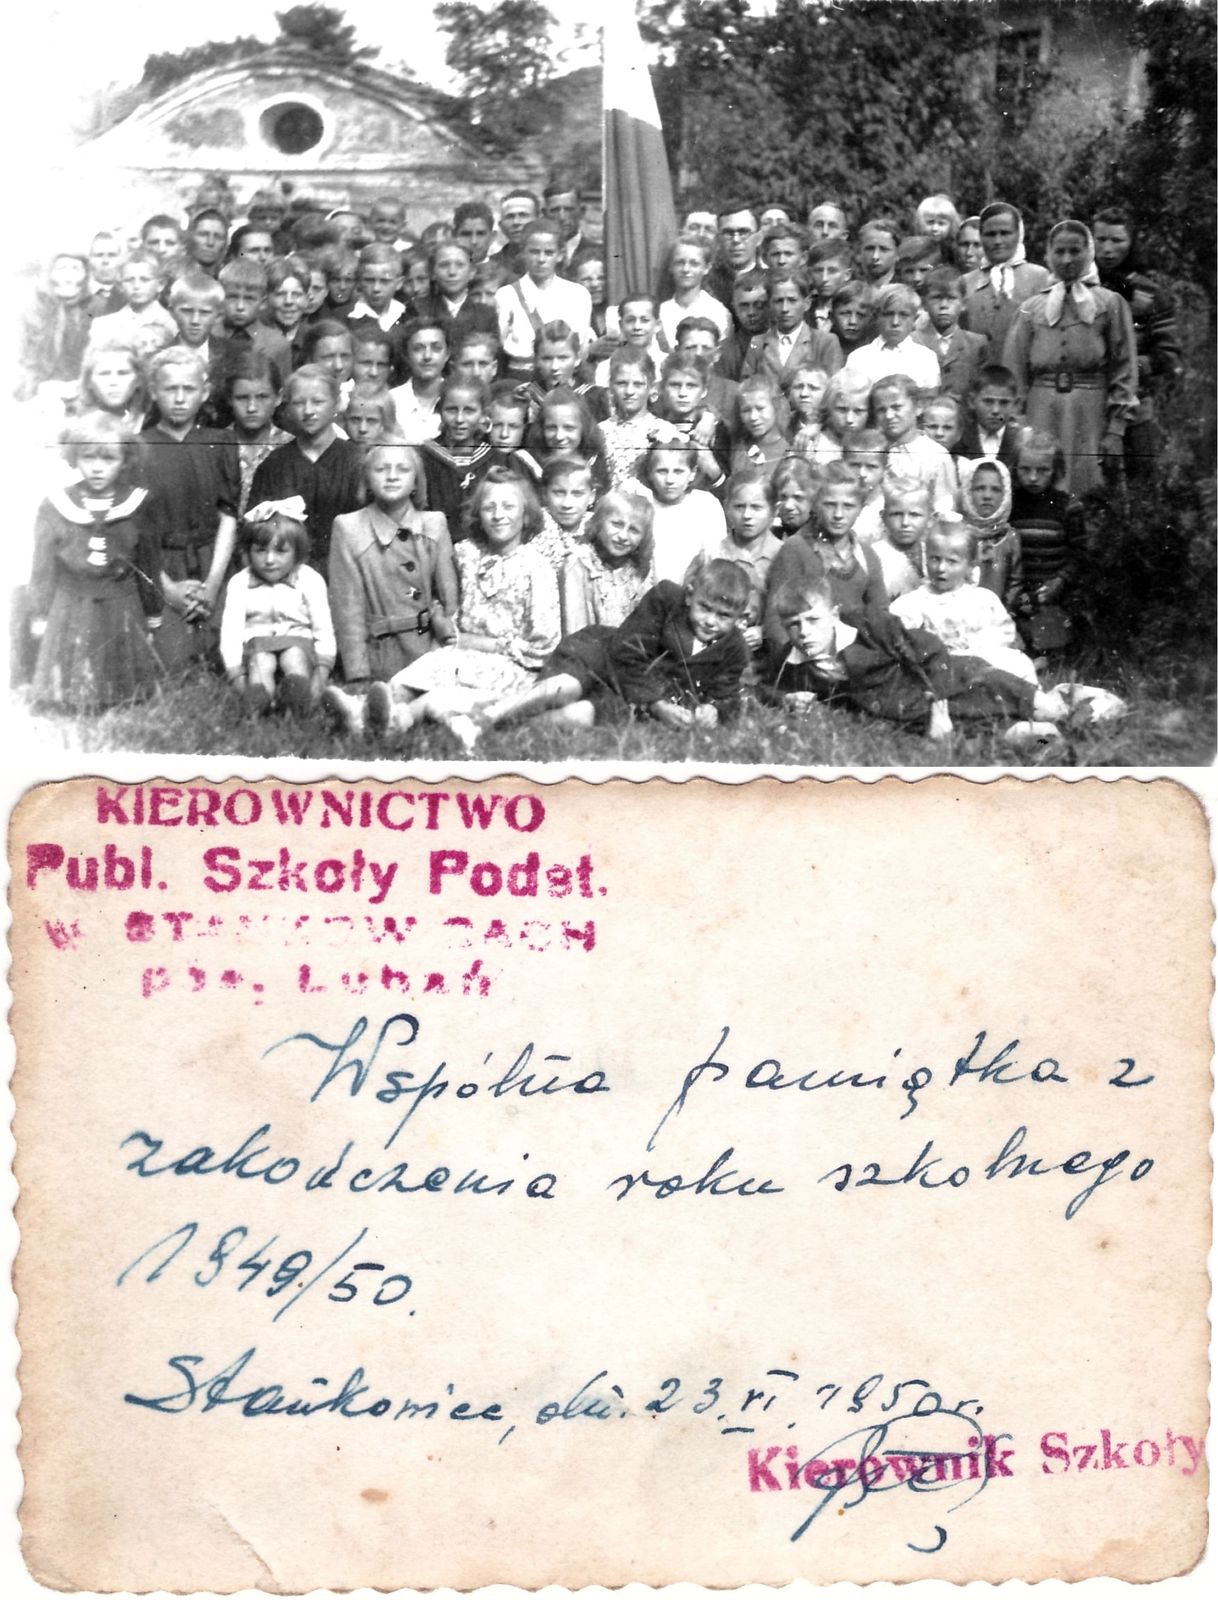 KIEROWNICTWO
Publ. Szkoły Podst.
w STANKOWICACH
pow. Lubań
Wspólna pamiątka z
zakończenia roku szkolnego
1949/50.
Stańkowice, dn. 23.VI.1950r.
Kierownik Szkoły